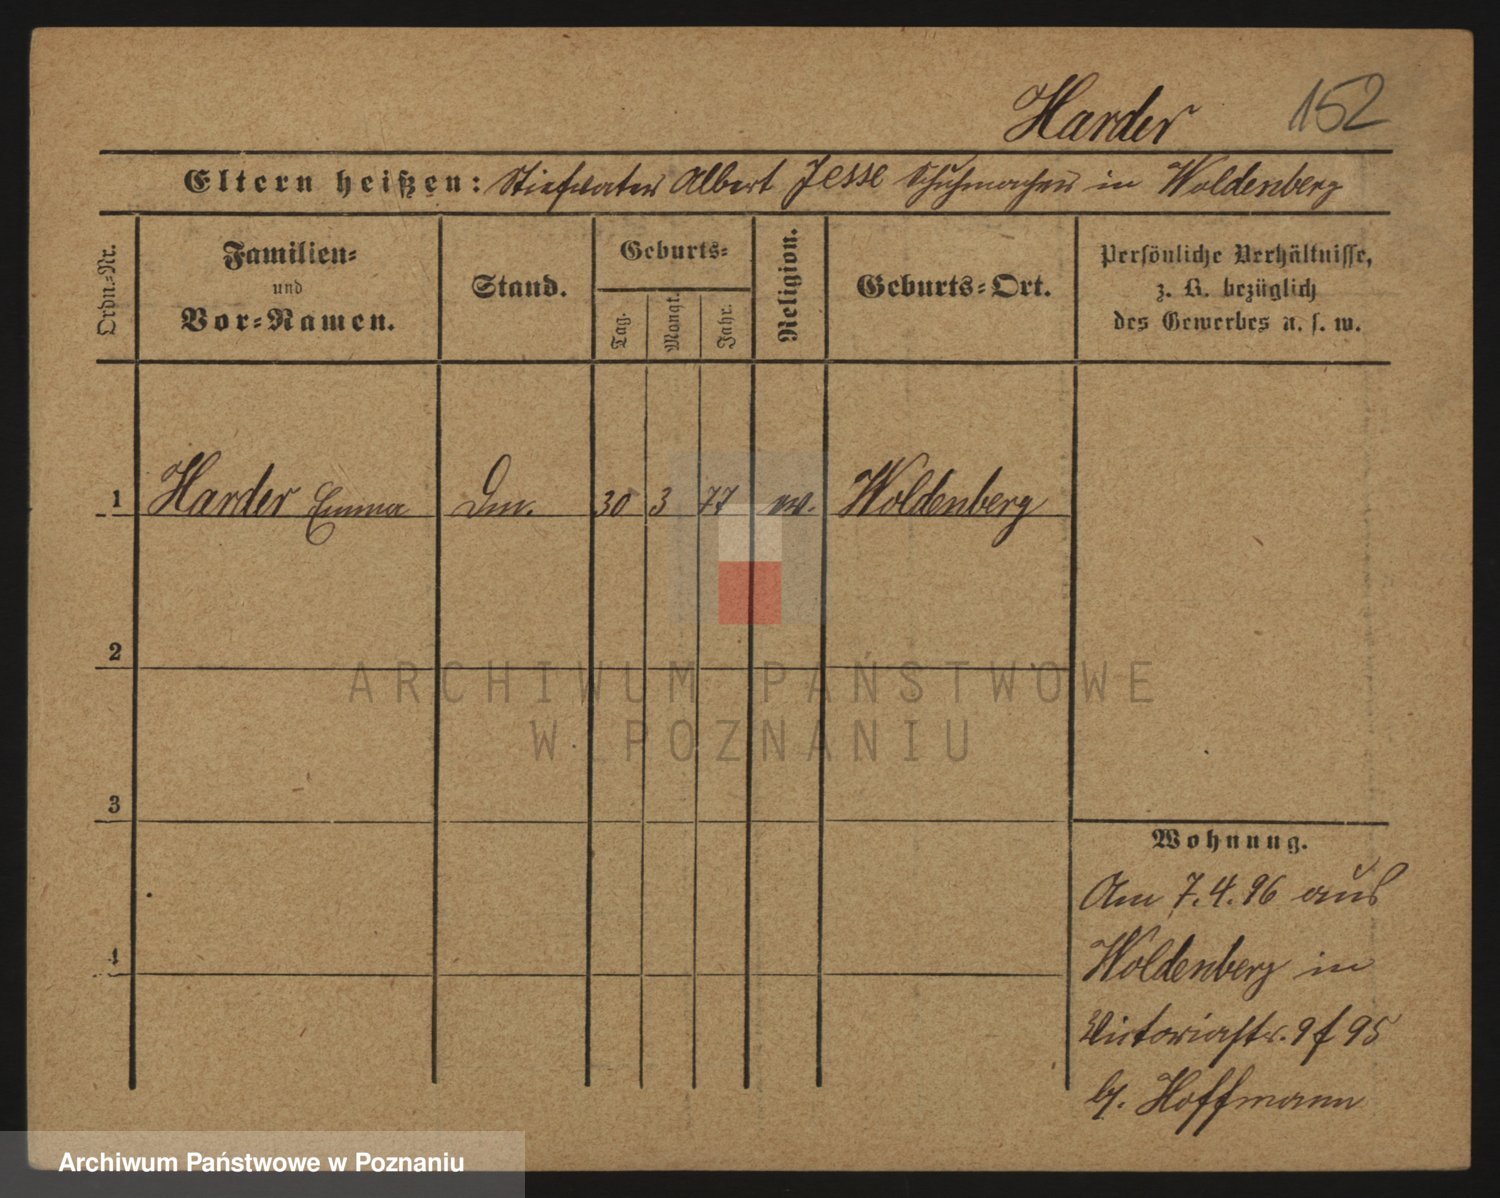 Harder 152
Eltern heißen: Stiefvater Albert Jesse Schuhmacher in Woldenberg
Ordn.-Nr.
Familien-
und
Vor-Namen.
Stand.
Geburts-
Tag. Monat. Jahr.
Religion.
Geburts-Ort.
Persönliche Verhältnisse,
z. B. bezüglich
des Gewerbes u. s. w.
1 Harder Emma 30 3 77 ev. Woldenberg
2
3
4
Wohnung.
Am 7.4.96 aus
Woldenberg in
Victoriastr. 9 95
b/. Hoffmann
ARCHIWUM PAŃSTWOWE
W POZNANIU
Archiwum Państwowe w Poznaniu